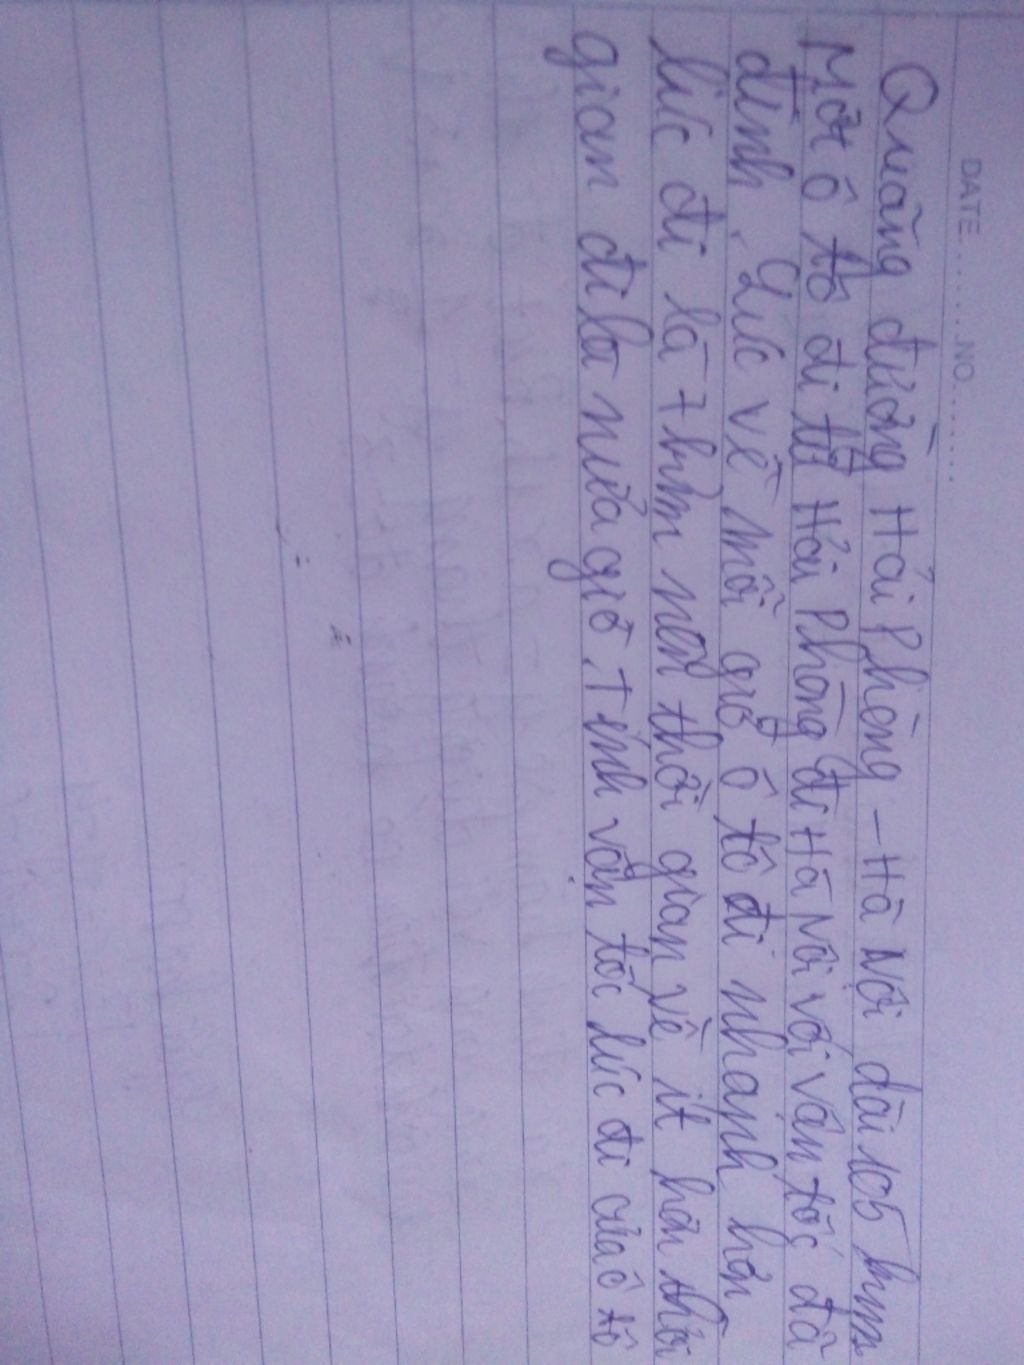 DATE. . . . . . . NO. . . . . . . .
Quãng đường Hải Phòng - Hà Nội dài 105 km
Một ô tô đi từ Hải Phòng đi Hà Nội với vận tốc đã
định. Lúc về mỗi giờ ô tô đi nhanh hơn
lúc đi là 7 km nên thời gian về ít hơn thời
gian đi là nửa giờ. Tính vận tốc lúc đi của ô tô